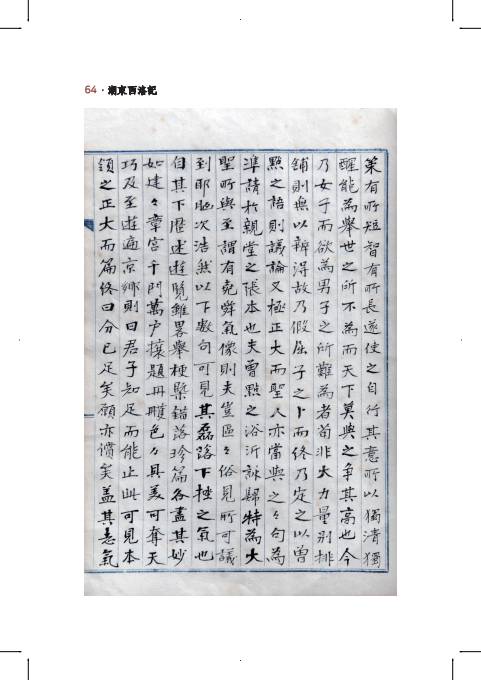 64 · 湖東西洛記
策有所短智有所長遂使之自行其意所以獨清獨
醒能為舉世之所不為而天下莫與之爭其高也今
乃女子而欲為男子之所難為者苟非大力量別排
鋪則無以辨得故乃假屈子之卜而終乃定之以曾
點之語則議論又極正大而聖人亦當與之々句為
準請於親堂之張本也夫曾點之浴沂詠歸特為大
聖所與至謂有堯舜氣像則夫豈區々俗見所可議
到耶次浩然以下數句可見其磊落下極之氣也
自其下歷述遊覽雖畧舉梗槩錯落珍篇各盡其妙
如建々章宮千門萬户題丹雘色々具美可奪天
巧及至遊遍京鄉則曰君子知足而能止此可見本
領之正大而篇終曰分已足矣願亦償矣盖其意氣